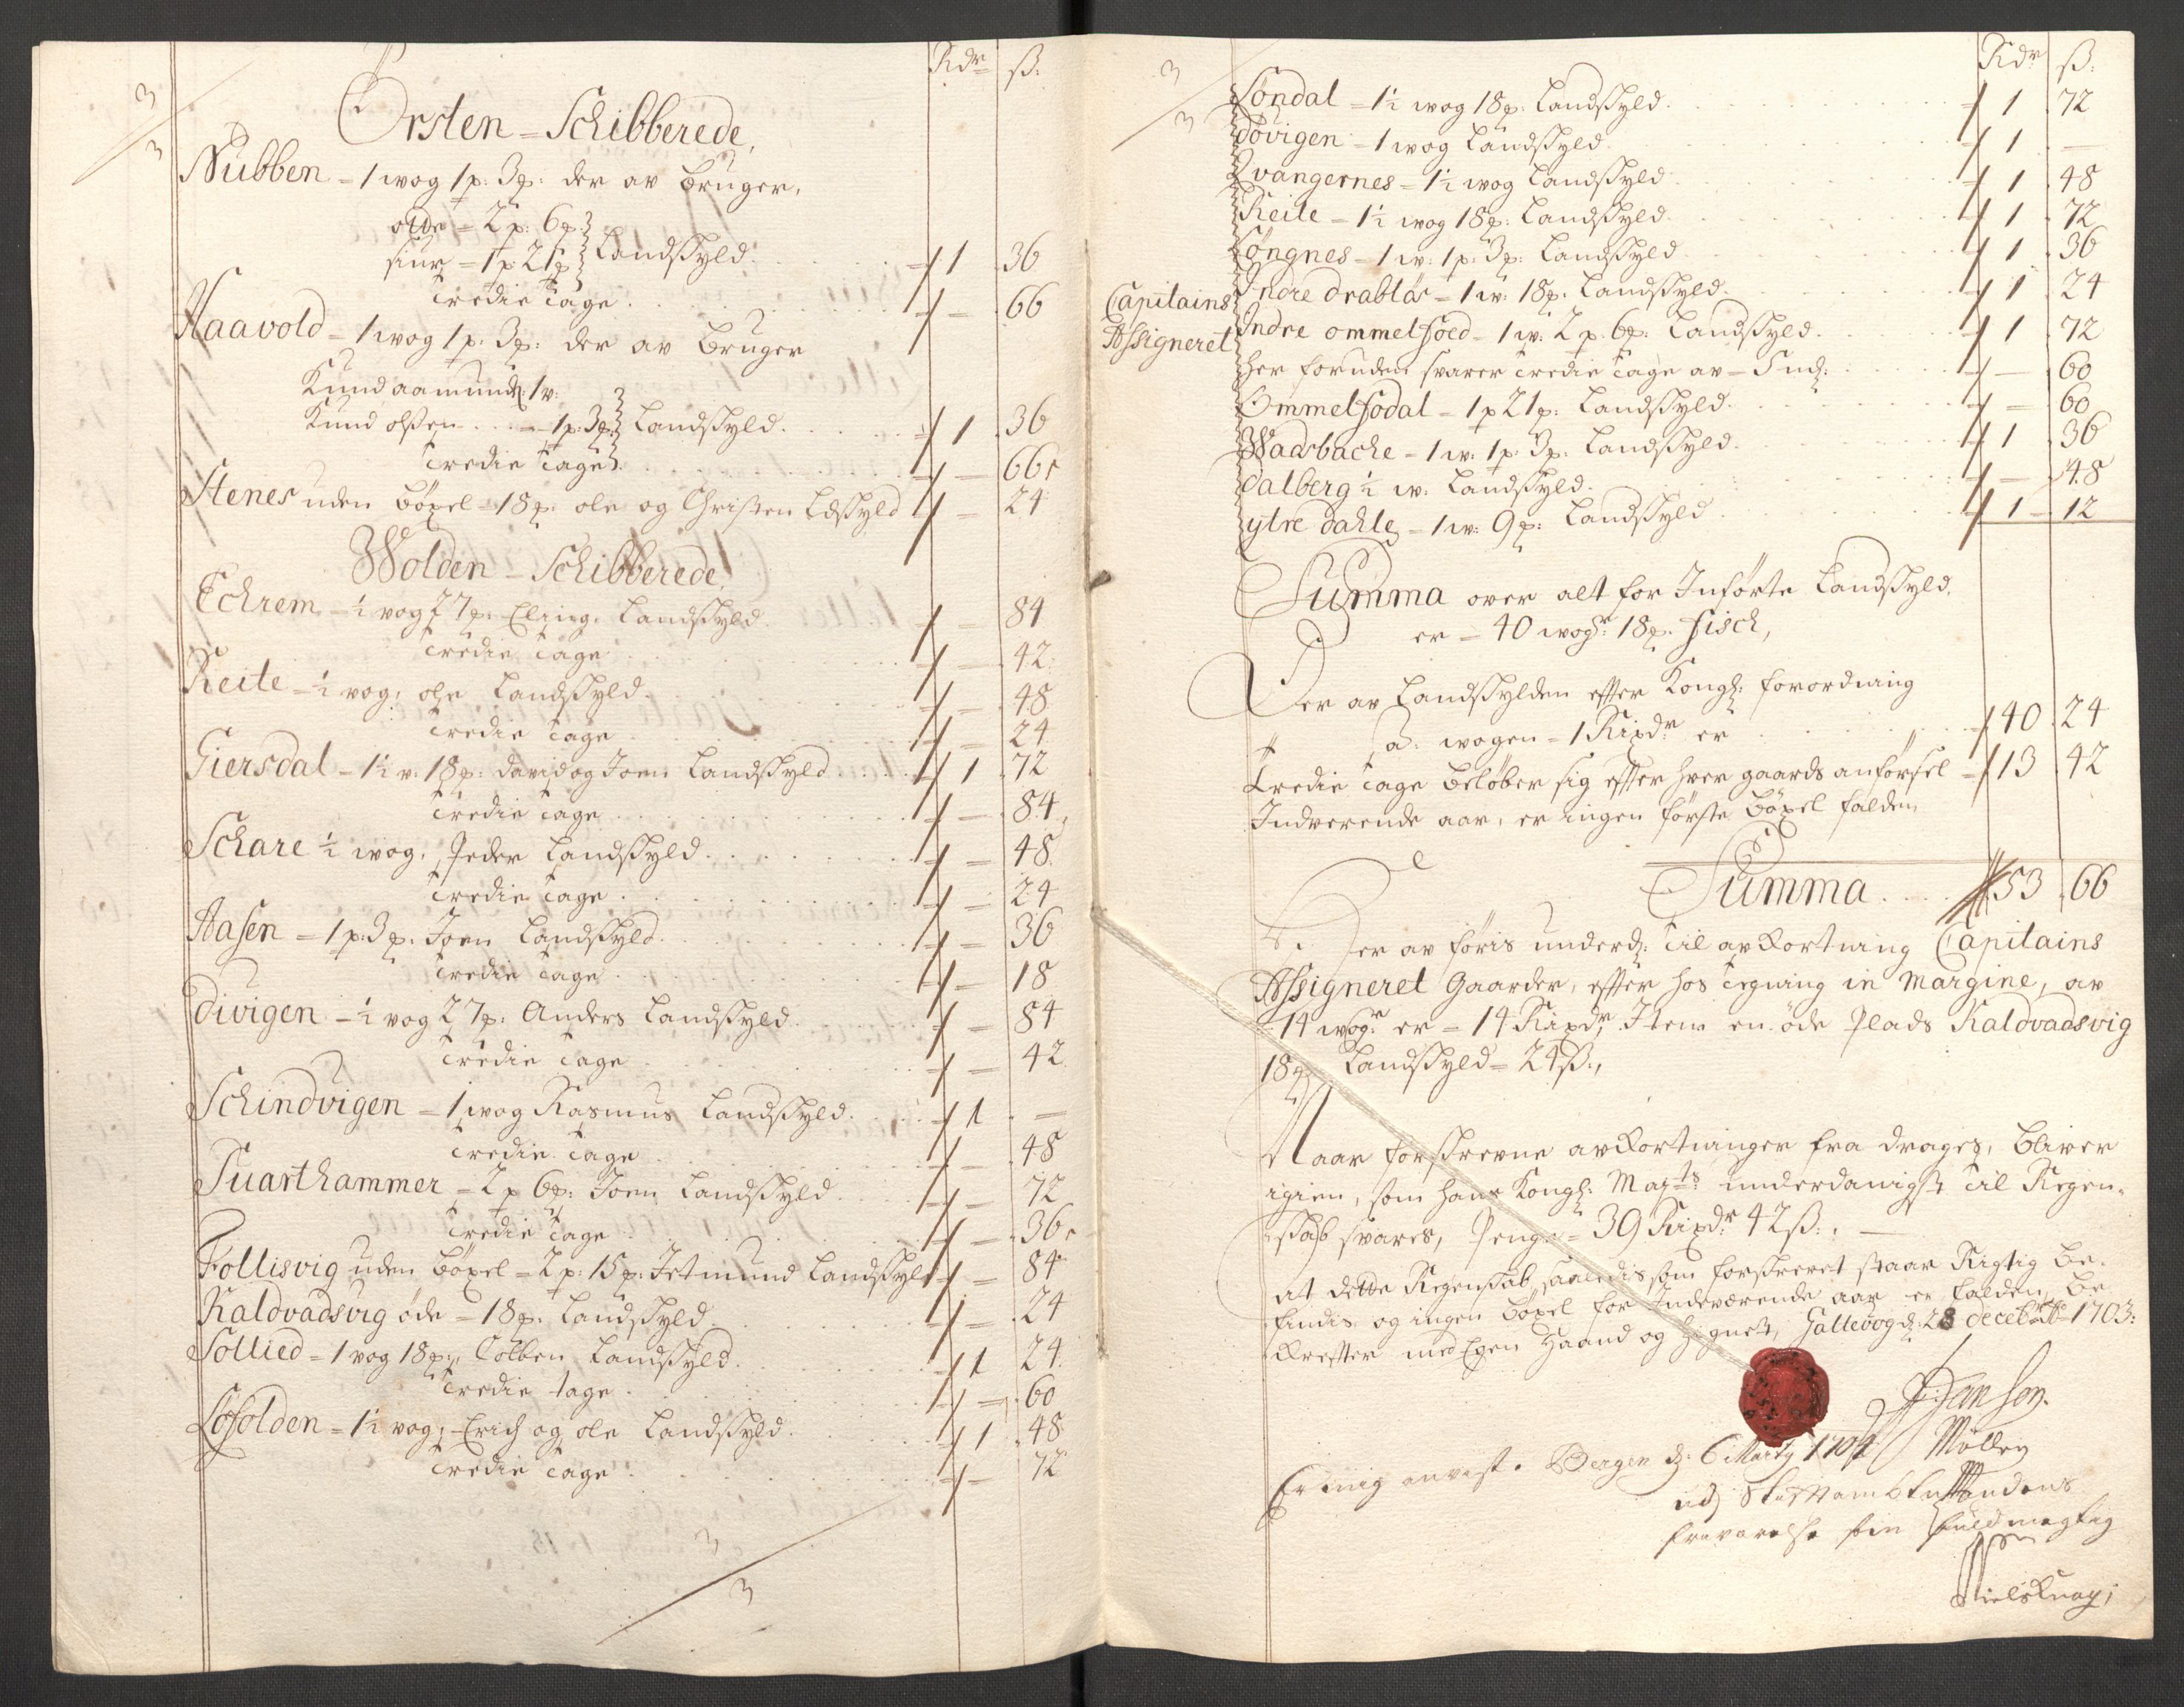 3
3
Rdr ß:
Orsten = Schibberede,
Nubben = 1 wog 1 p: 3 ȹ: der av bruger,
olde = 2 p: 6 ȹ:
siur = 1 p 21 ȹ Landskyld. 1 36
Tredie Tage — 66
Haavold = 1 wog 1 p: 3 ȹ: der av Bruger
Knud aamunds: 1 v:
Knud olssen = 1 p: 3 ȹ: Landskyld. 1 36
Tredie Tage — 66
Stenes uden böxel = 18 ȹ: ole og Christen Ldskyld — 24
Wolden = Schibberede,
Echrem = ½ vog 27 ȹ: Elling, Landskyld. — 84
Tredie Tage — 42
Reite = ½ vog, ole Landskyld. — 48
Tredie Tage — 24
Giersdal = 1½ v: 18 ȹ: david og Joen Landskyld 1 72
Tredie Tage — 84
Schare ½ wog, Peder Landskyld — 48
Tredie Tage — 24
Aasen = 1 p: 3 ȹ: Joen Landskyld — 36
Tredie Tage — 18
divigen = ½ vog 27 ȹ: Anders Landskyld — 84
Tredie Tage — 42
Schindvigen = 1 wog Rasmus Landskyld. 1 —
Tredie Tage — 48
Suarthammer = 2 p 6 ȹ: Joen Landskyld — 72
Tredie Tage — 36
Follisvig uden böxel = 2 p: 15 ȹ: Jetmund Landskyld — 84
Kaldvadsvig öde = 18 ȹ: Landskyld — 24
Sollied = 1 vog 18 ȹ:, Colben Landskyld. 1 24
Tredie tage — 60
Löfolden = 1½ vog, Erich og ole Landskyld. 1 48
Tredie Tage — 72
3
3
3
3
Rdr ß:
Söndal = 1½ wog 18 ȹ: Landskyld. 1 72
dövigen = 1 wog Landskyld 1 —
Qvangernes = 1½ wog Landskyld 1 48
Reite = 1½ wog 18 ȹ: Landskyld 1 72
Löngnes = 1 w: 1 p: 3 ȹ: Landskyld 1 36
Capitains Indre drabløs = 1 w: 18 ȹ: Landskyld. 1 24
Assigneret Indre ommelfoed = 1 w: 2 p: 6 ȹ: Landskyld. 1 72
her foruden svarer Tredie Tage av = — 60
Ommelsodal = 1 p 21 ȹ: Landskyld. — 60
Waasbache = 1 w: 1 p: 3 ȹ: Landskyld 1 36
dalberg ½ w: Landskyld. — 48
ytre dahle = 1 w: 9 ȹ: Landskyld 1 12
Summa over alt for Införte Landskyld,
er = 40 wogr: 18 ȹ: fisch,
Der av Landskylden efter Kongl: forordning
a: wogen = 1 Rixdr er 40 24
Tredie Tage beløber sig efter hver gaards anförsel = 13 42
Indverende aar, er ingen förste böxel falden
Summa 53 66
Der av föris underd: til avkortning Capitains
Assigneret Gaarder, efter hos tegning in margine, av
14 wogr: er = 14 Rixdr, Item en öde Plads Kaldvadsvig
18 ȹ Landskyld = 24 ß:,
Naar forskrevne avkortninger fra drages, bliver
igien, som hans Kongl: Mayts: underdanigst til Regen-
skab svares, Penge = 39 Rixdr: 42 ß:, —
at dette Regenskab saaledis som forskrevet staar Rigtig be-
findis og ingen böxel for Indeværende aar er falden, be
krefter med Egen Haand og Signet, Gallevog d: 28 decebr: Ao 1703:
Jansen.
Er mig anvist. Bergen d: 6 Marty 1704 Möller
udj Stiftambtmandens
fraværelse sin fuldmegtig
Niels Knag,